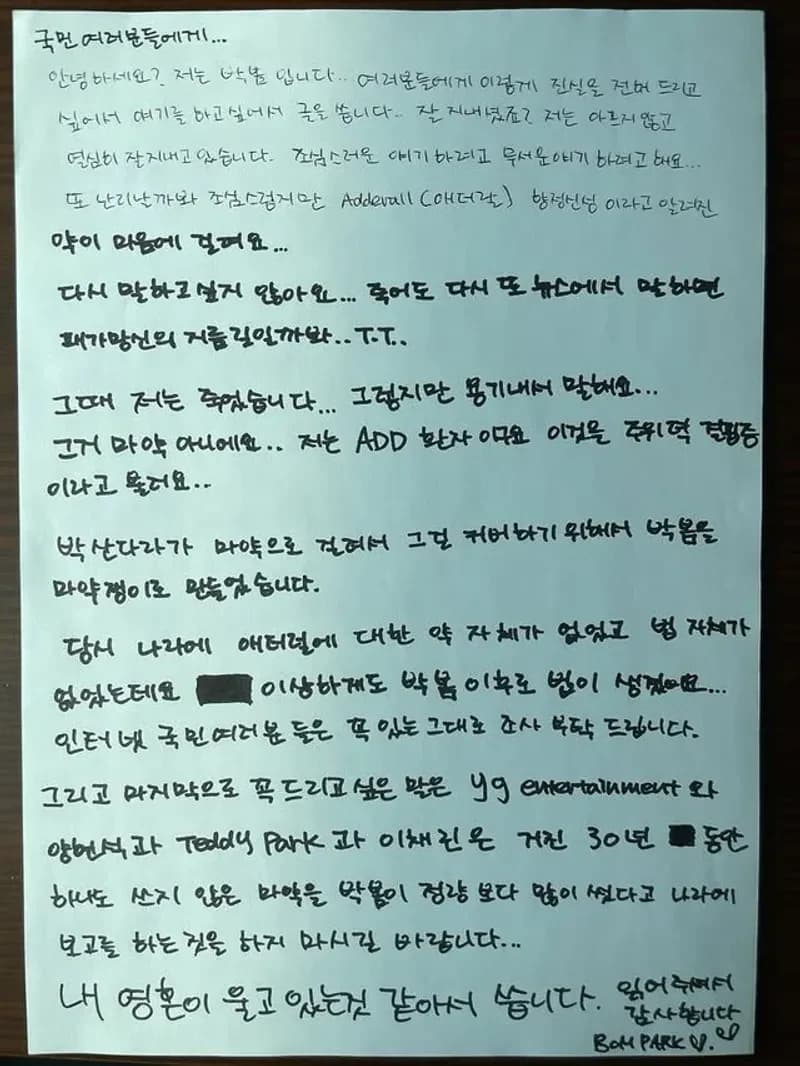 국민 여러분들에게...
안녕하세요? 저는 박봄 입니다.. 여러분들에게 이렇게 진실을 전해 드리고
싶어서 얘기를 하고싶어서 글을 씁니다.. 잘 지내셨죠? 저는 아프지않고
열심히 잘지내고 있습니다. 조심스러운 얘기 하려고 무서운얘기 하려고 해요...
또 난리날까봐 조심스럽지만 Adderall (애더럴) 향정신성 이라고 알려진
약이 마음에 걸려요...
다시 말하고싶지 않아요... 죽어도 다시 또 뉴스에서 말하면
패가망신의 지름길일까봐.. T.T.
그때 저는 죽었습니다... 그렇지만 용기내서 말해요...
그거 마약 아니에요.. 저는 ADD 환자 이구요 이것은 주위력 결핍증
이라고 불러요..
박산다라가 마약으로 걸려서 그걸 커버하기위해서 박봄을
마약쟁이로 만들었습니다.
당시 나라에 애더럴에 대한 약 자체가 없었고 법 자체가
없었는데요 이상하게도 박봄 이후로 법이 생겼어요...
인터넷 국민여러분 들은 꼭 있는그대로 조사 부탁 드립니다.
그리고 마지막으로 꼭드리고 싶은 말은 yg entertainment 와
양현석과 Teddy Park 과 이채린은 거진 30년 동안
하나도 쓰지 않은 마약을 박봄이 정량 보다 많이 썼다고 나라에
보고를 하는것을 하지 마시길 바랍니다...
내 영혼이 울고 있는것 같아서 씁니다. 읽어주셔서
감사합니다
BOM PARK ♡.♡